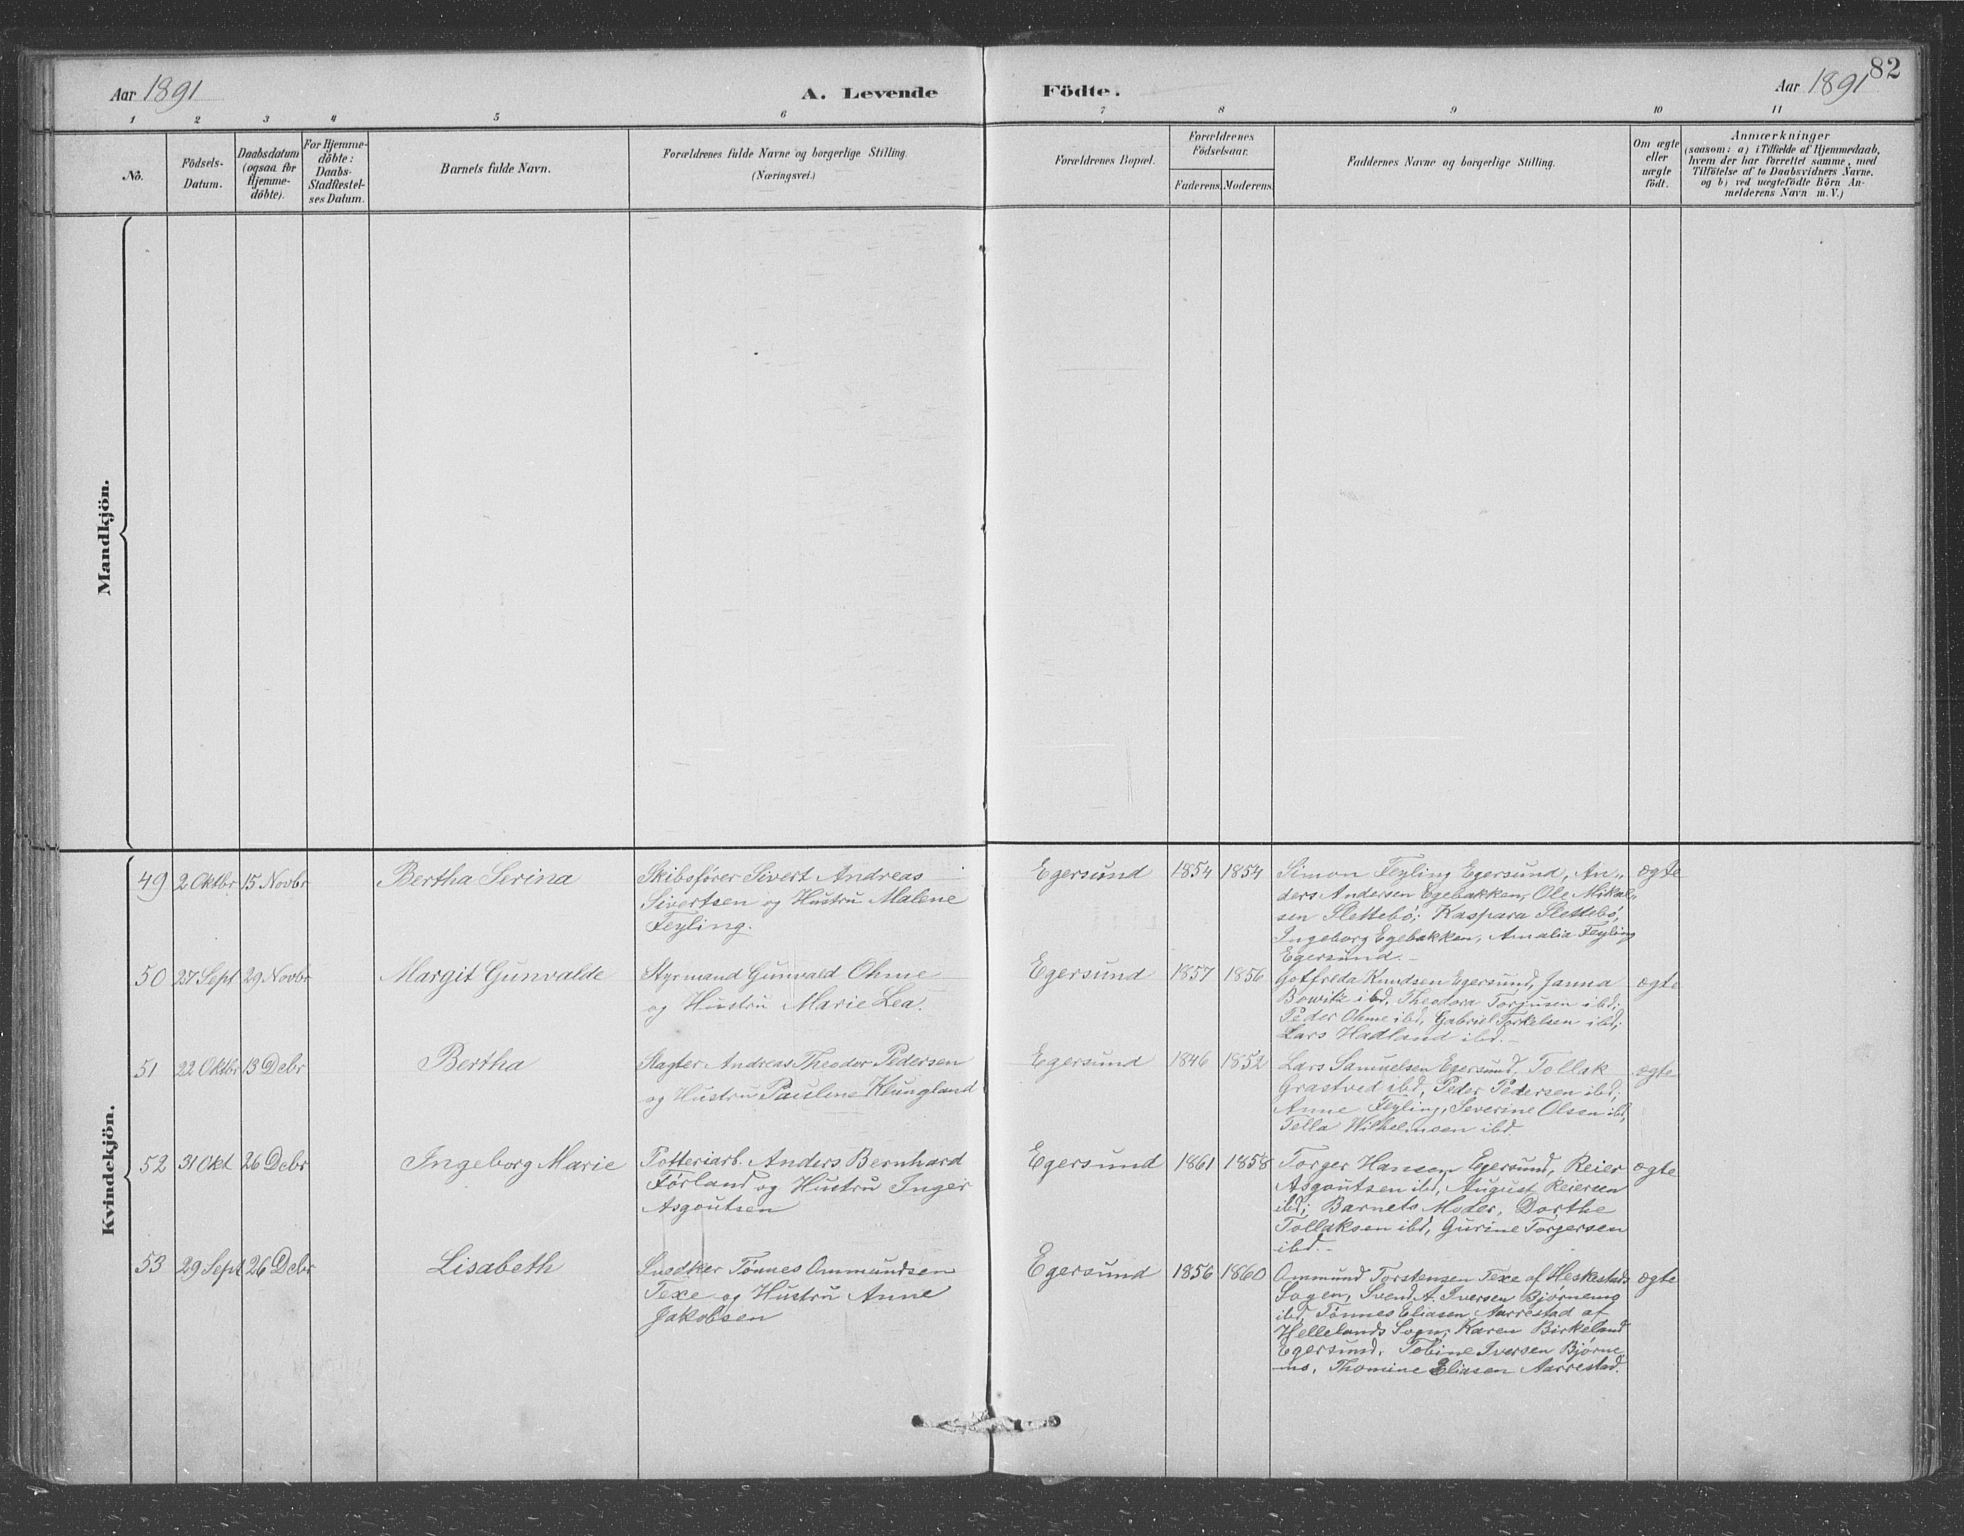 82
Aar 1891
A. Levende Födte.
Aar 1891
1 2 3 4 5 6 7 8 9 10 11
No.
Födsels-Datum.
Daabsdatum (ogsaa for Hjemme-döbte).
For Hjemme-döbte: Daabs-Stadfæstel-ses Datum.
Barnets fulde Navn.
Forældrenes fulde Navne og borgerlige Stilling.
(Næringsvei.)
Forældrenes Bopæl.
Forældrenes Födselsaar.
Faderens. Moderens.
Faddernes Navne og borgerlige Stilling.
Om ægte eller uægte födt.
Anmærkninger
(saasom: a) i Tilfælde af Hjemmedaab,
hvem der har forrettet samme, med
Tilföielse af to Daabsvidners Navne,
og b) ved uægtefödte Börn An-
melderens Navn m.V.)
Mandkjön.
Kvindekjön.
49 2 Oktbr 15 Novbr Bertha Serina
Skibsfører Sivert Andreas
Sivertsen og Hustru Malene
Feyling.
Egersund 1854 1854
Simon Feyling Egersund, An„
ders Andersen Egebakken, Ole Mikal„
sen Slettebö; Kaspara Slettebö,
Ingeborg Egebakken, Amalia Feyling
Egersund.
ægte
50 27 Sept 29 Novbr Margit Gunvalde
Styrmand Gunvald Ohme
og Hustru Marie Lea.
Egersund 1857 1856
Gotfreda Knudsen Egersund, Janna
Bowitz ibd, Theodora Torjusen ibd;
Peder Ohme ibd, Gabriel Torkelsen ibd;
Lars Hadland ibd.
ægte
51 22 Oktbr 13 Debr Bertha
Slagter Andreas Theodor Pedersen
og Hustru Pauline Klungland
Egersund 1846 1852
Lars Samuelsen Egersund, Tollak
Grastved ibd, Peder Pedersen ibd;
Anne Feyling, Severine Olsen ibd,
Tella Wilhelmsen ibd.
ægte
52 31 Okt 26 Debr Ingeborg Marie
Potteriarb. Anders Bernhard
Förland og Hustru Inger
Asgoutsen
Egersund 1861 1858
Torger Hansen Egersund, Reier
Asgoutsen ibd, August Reiersen
ibd; Barnets Moder, Dorthe
Tollaksen ibd, Gurine Torgersen
ibd.
ægte
53 29 Sept 26 Debr Lisabeth
Snedker Tønnes Ommundsen
Texe og Hustru Anne
Jakobsen
Egersund 1856 1860
Ommund Torstensen Texe af Heskestads
Sogen, Svend A. Iversen Bjørnemo
ibd, Tønnes Eliasen Aarrestad af
Hellelands Sogn; Karen Birkeland
Egersund, Tobine Iversen Bjørne
mo, Thomine Eliasen Aarrestad.
ægte